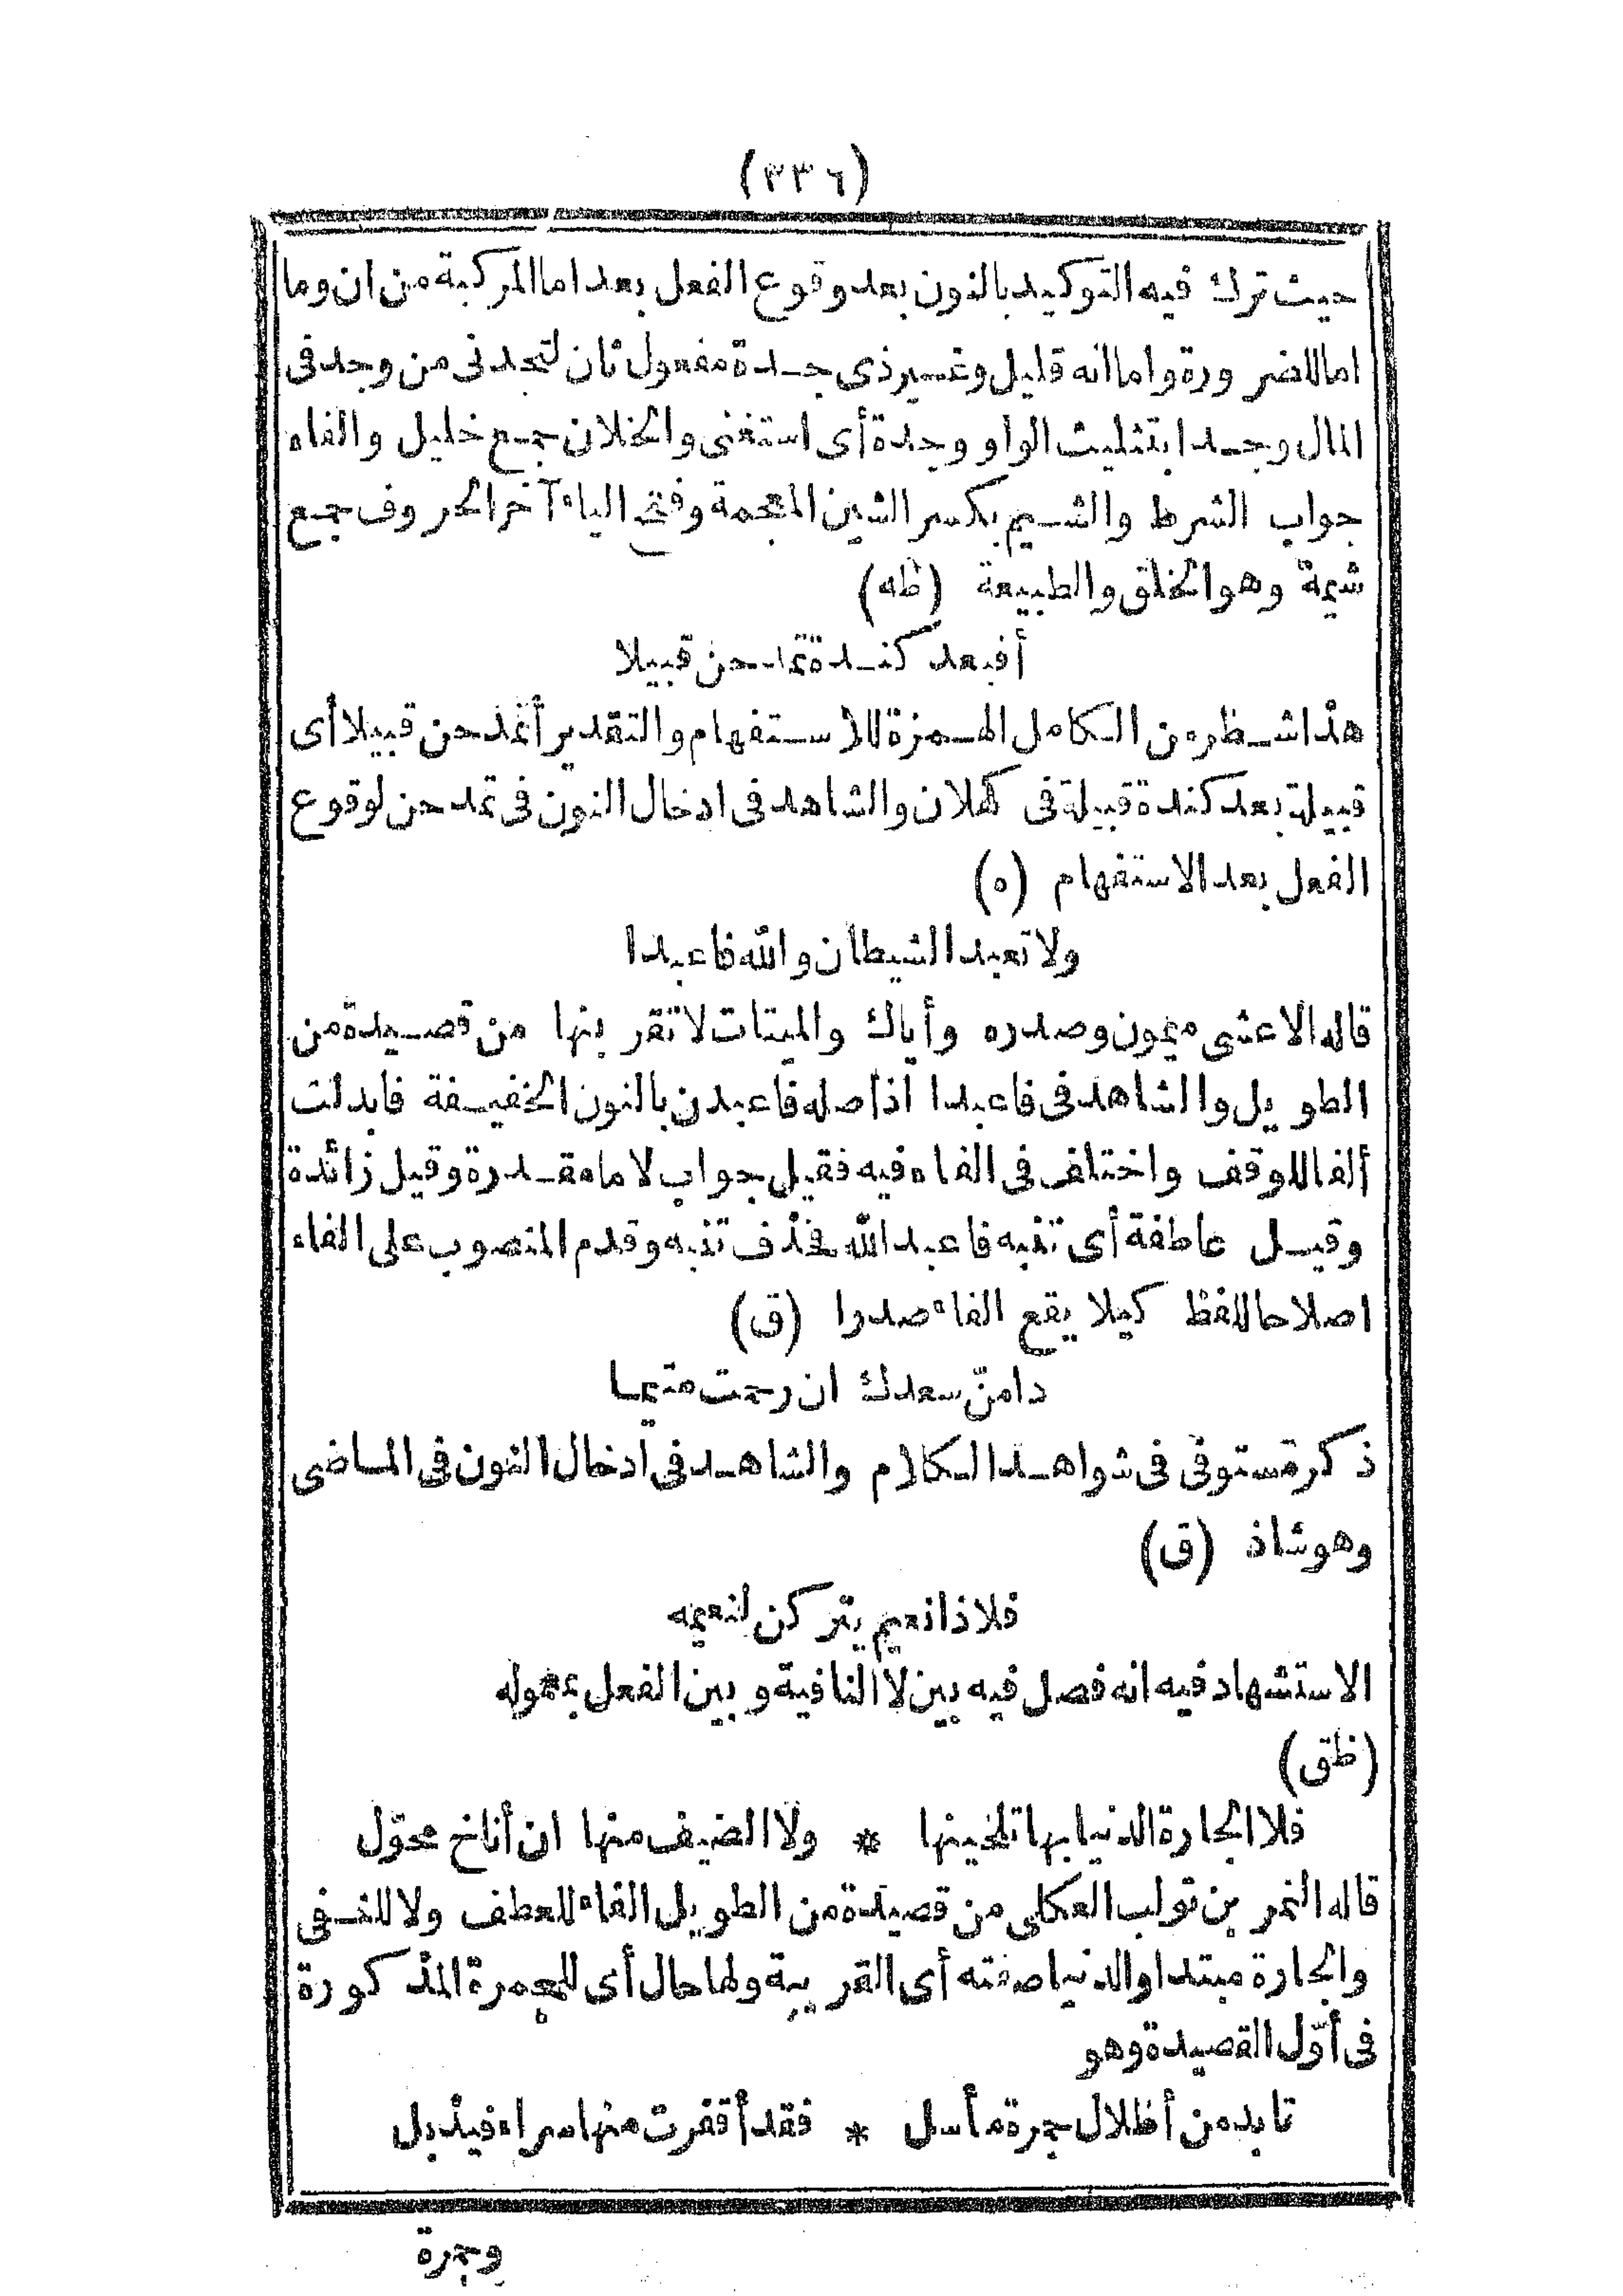 (٣٣٦)
حيث ترك فيه التوكيد بالنون بعد وقوع الفعل بعد اما المركبة من ان وما
اما للضرورة واما انه قليل وغير ذى جدة مفعول ثان لتجدنى من وجد فى
المال وجدا بتثليث الواو وجدة أى استغنى والخلان جمع خليل والفاء
جواب الشرط والشيم بكسر الشين المعجمة وفتح الياء آخر الحروف جمع
شيمة وهو الخلق والطبيعة (ظه)
أفبعد كندة تمدحن قبيلا
هذا شطر من الكامل الهمزة للاستفهام والتقدير أتمدحن قبيلا أى
قبيلة بعد كندة قبيلة فى كهلان والشاهد فى ادخال النون فى تمدحن لوقوع
الفعل بعد الاستفهام (ه)
ولا تعبد الشيطان والله فاعبدا
قاله الاعشى ميمون وصدره وأياك والميتات لا تقربنها من قصيدة من
الطويل والشاهد فى فاعبدا اذ أصله فاعبدن بالنون الخفيفة فابدلت
ألفا للوقف واختلف فى الفاء فيه فقيل جواب لاما مقدرة وقيل زائدة
وقيل عاطفة أى تنبه فاعبد الله فحذف تنبه وقدم المنصوب على الفاء
اصلاحا للفظ كيلا يقع الفاء صدرا (ق)
دامنّ سعدك ان رحمت متيما
ذكر مستوفى فى شواهد الكلام والشاهد فى ادخال النون فى الماضى
وهو شاذ (ق)
فلا ذا نعيم يتركن لنعيمه
الاستشهاد فيه انه فصل فيه بين لا النافية وبين الفعل بمعموله
(ظق)
فلا الجارة الدنيا بها تلحينها * ولا الضيف منها ان أناخ محوّل
قاله النمر بن تولب العكلى من قصيدة من الطويل الفاء للعطف ولا للنفى
والجارة مبتدا والدنيا صفته أى القريبة ولها حال أى للجمرة المذكورة
فى أوّل القصيدة وهو
تابد من أطلال جمرة مأسل * فقد أقفرت منها سراء فيذبل
وجمرة